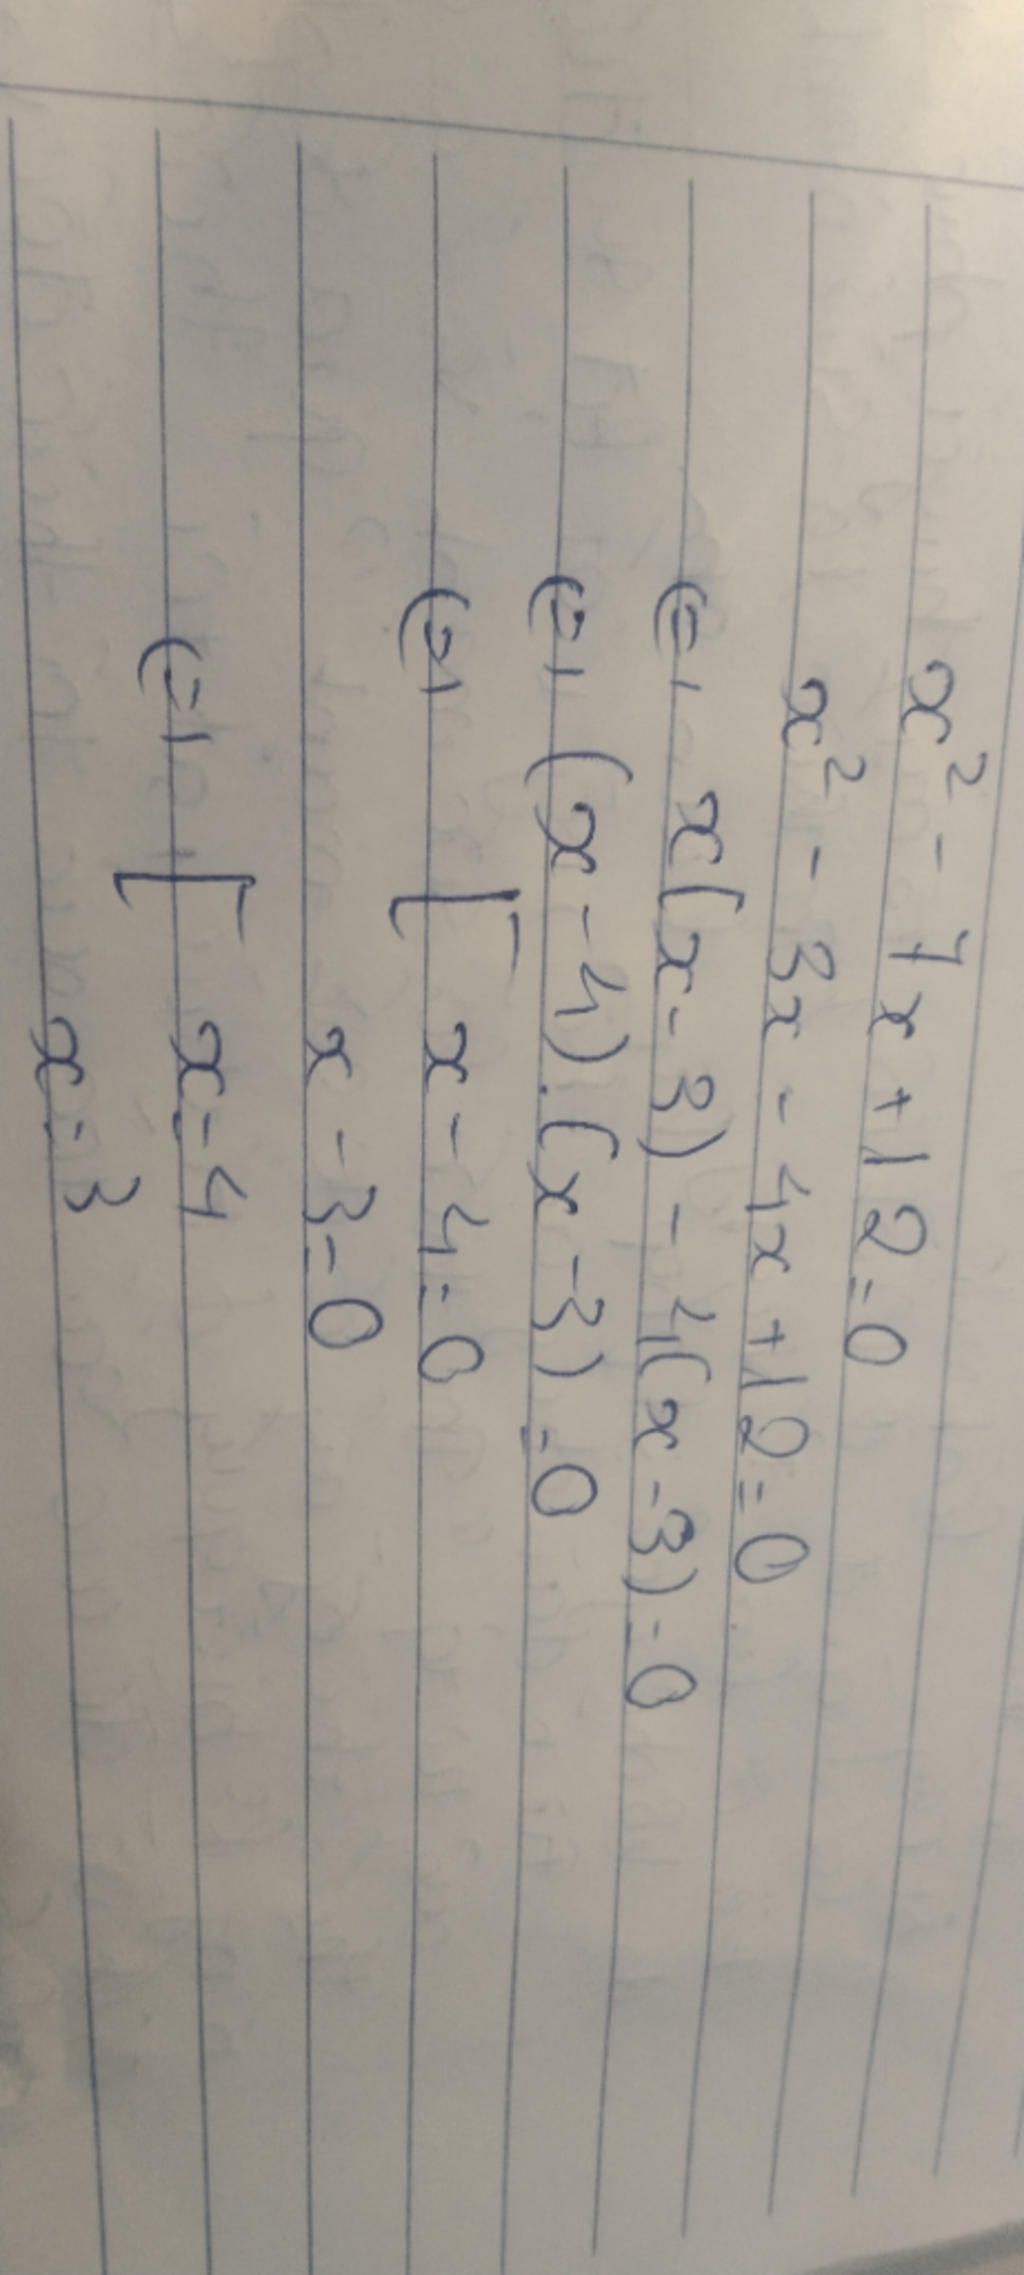 x² - 7x + 12 = 0
x² - 3x - 4x + 12 = 0
(=) x(x - 3) - 4(x - 3) = 0
(=) (x - 4).(x - 3) = 0
(=) [ x - 4 = 0
x - 3 = 0
(=) [ x = 4
x = 3